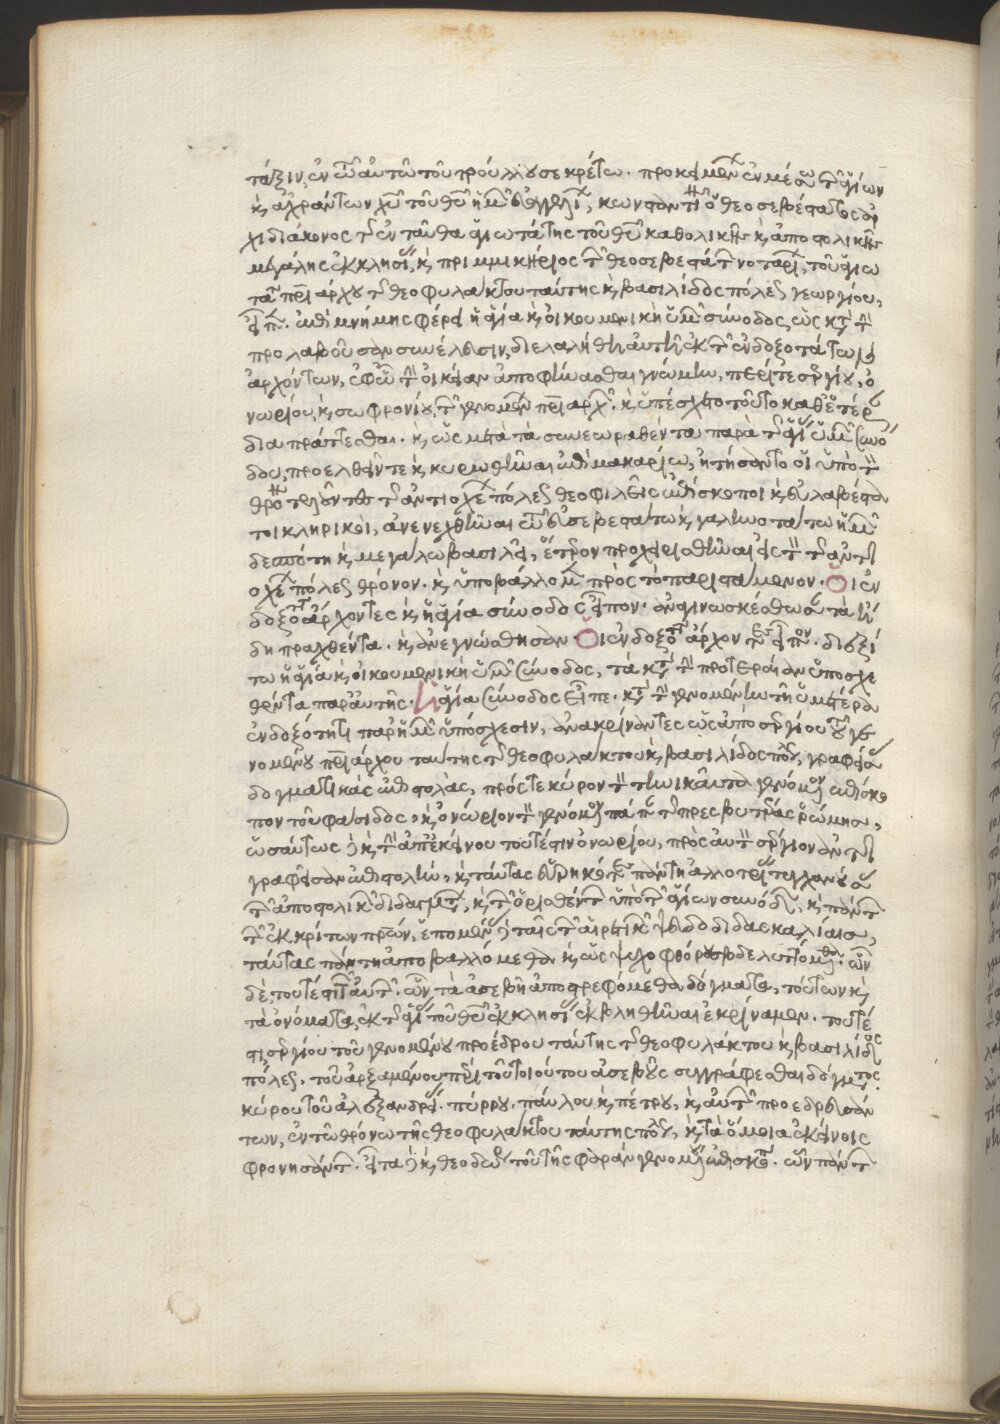 τάξιν, ἐν τῶ αὐτῶ τοῦ τρούλλου σεκρέτω. προκειμένων ἐν μέσω τῶν ἁγίων
κ(αὶ) ἀχράντων χυ τοῦ θυ ἡμῶν εὐαγγελίων, κωνσταντῖνος ὁ θεοσεβέστατος ἀρ
χιδιάκονος τῆς ἐνταῦθα ἁγιωτάτης τοῦ θυ καθολικῆς κ(αὶ) ἀποστολικῆς
μεγάλης ἐκκλησίας, κ(αὶ) πριμμικήριος τῶν θεοσεβεστάτων νοταρίων, τοῦ ἁγιω
τάτου πατριάρχου τῆς θεοφυλάκτου ταύτης κ(αὶ) βασιλίδος πόλεως γεωργίου,
εἶπεν. ἐπὶ μνήμης φέρει ἡ ἁγία κ(αὶ) οἰκουμενικὴ ὑμῶν σύνοδος, ὡς κατὰ τὴν
προλαβοῦσαν συνέλευσιν, διελαλήθη αὐτῆ ἐκ τῶν ἐνδοξοτάτων
ἀρχόντων, ἐφῶ τὴν οἰκείαν ἀποφήνασθαι γνώμην, περί τε σεργίου, ὁ
νωρίου, κ(αὶ) σωφρονίου, τῶν γενομένων πατριάρχων. κ(αὶ) ὑπέσχετο τοῦτο καθ' ἕτέραν
διαπράττεσθαι. κ(αὶ) ὡς μετὰ τὰ συνεωραθέντα παρὰ τῆς ἁγίας ὑμῶν συνό
δου, προελθεῖν τε κ(αὶ) κυρωθῆναι ἐπὶ μακαρίω, ἠτήσαντο οἱ ὑπὸ τὸν
θρόνον τελοῦντες τῆς ἀντιοχέων πόλεως θεοφιλεῖς ἐπίσκοποι κ(αὶ) εὐλαβέστα
τοι κληρικοὶ, ἀνενεχθῆναι τῶ εὐσεβεστάτω κ(αὶ) γαληνοτάτω ἡμῶν
δεσπότη κ(αὶ) μεγάλω βασιλεῖ, ἕτερον προχειρισθῆναι εἰς τὸν τῆς ἀντι
οχέων πόλεως θρόνον. κ(αὶ) ὑποβάλλομεν πρὸς τὸ παριστάμενον. Οἱ ἐν
δοξότατοι ἄρχοντες κ(αὶ) ἡ ἁγία σύνοδος εἶπον. ἀναγινωσκέσθωσαν τὰ ἤ
δη πραχθέντα. κ(αὶ) ἀνεγνώσθησαν Οἱ ἐνδοξότατοι ἄρχοντες εἶπον. δειξά
τω ἡ ἁγία κ(αὶ) οἰκουμενικὴ ὑμῶν σύνοδος, τὰ κατὰ τὴν προτεραίαν ὑποσχε
θέντα παρ' αὐτῆς. Ἡ ἁγία σύνοδος εἶπε. κατὰ τὴν γενομένην τῆ ὑμετέρα
ἐνδοξότητι παρ' ἡμῶν ὑπόσχεσιν, ἀνακρίναντες ὡς ἀπὸ σεργίου τοῦ γε
νομένου πατριάρχου ταύτης τῆς θεοφυλάκτου κ(αὶ) βασιλίδος πόλεως, γραφείσας
δογματικὰς ἐπιστολὰς, πρός τε κύρον τὸν τηνικαῦτα γενόμενον ἐπίσκο
πον τοῦ φάσιδος, κ(αὶ) ὀνώριον τὸν γενόμενον πάπαν τῆς πρεσβυτέρας ῥώμης,
ὡσαύτως δὲ κ(αὶ) τὴν ἀπ' ἐκείνου τουτέστιν ὀνωρίου, πρὸς αὐτὸν σέργιον ἀντι
γραφεῖσαν ἐπιστολὴν, κ(αὶ) ταύτας εὑρηκότες πάντη ἀλλοτρίας τυγχανούσας
τῶν ἀποστολικῶν διδαγμάτων, κ(αὶ) τῶν ὁρισθέντων ὑπὸ τῶν ἁγίων συνόδων, κ(αὶ) πάντων
τῶν ἐκκρίτων πατέρων, ἑπομένας δὲ ταῖς τῶν αἱρετικῶν ψευδοδιδασκαλίαις,
ταύτας πάντη ἀποβαλλόμεθα κ(αὶ) ὡς ψυχοφθόρους βδελυττόμεθα. ὧν
δὲ, τουτέστιν αὐτῶν. ὧν τὰ ἀσεβῆ ἀποστρεφόμεθα δόγματα, τούτων κ(αὶ)
τὰ ὀνόματα, ἐκ τῆς ἁγίας τοῦ θυ ἐκκλησίας ἐκβληθῆναι ἐκρίναμεν. τουτέ
στι, σεργίου τοῦ γενομένου προέδρου ταύτης τῆς θεοφυλάκτου κ(αὶ) βασιλίδος
πόλεως. τοῦ ἀρξαμένου περὶ τοῦ τοιούτου ἀσεβοῦς συγγράφεσθαι δόγματος.
κύρου τοῦ ἀλεξανδρείας. πύρρου. παύλου κ(αὶ) πέτρου, κ(αὶ) αὐτῶν προεδρευσάν
των, ἐν τῶ θρόνω τῆς θεοφυλάκτου ταύτης πόλεως, κ(αὶ) τὰ ὅμοια ἐκείνοις
φρονησάντων. εἶτα δὲ κ(αὶ) θεοδώρου τοῦ τῆς φαρὰν γενομένου ἐπισκόπου. ὧν πάντων